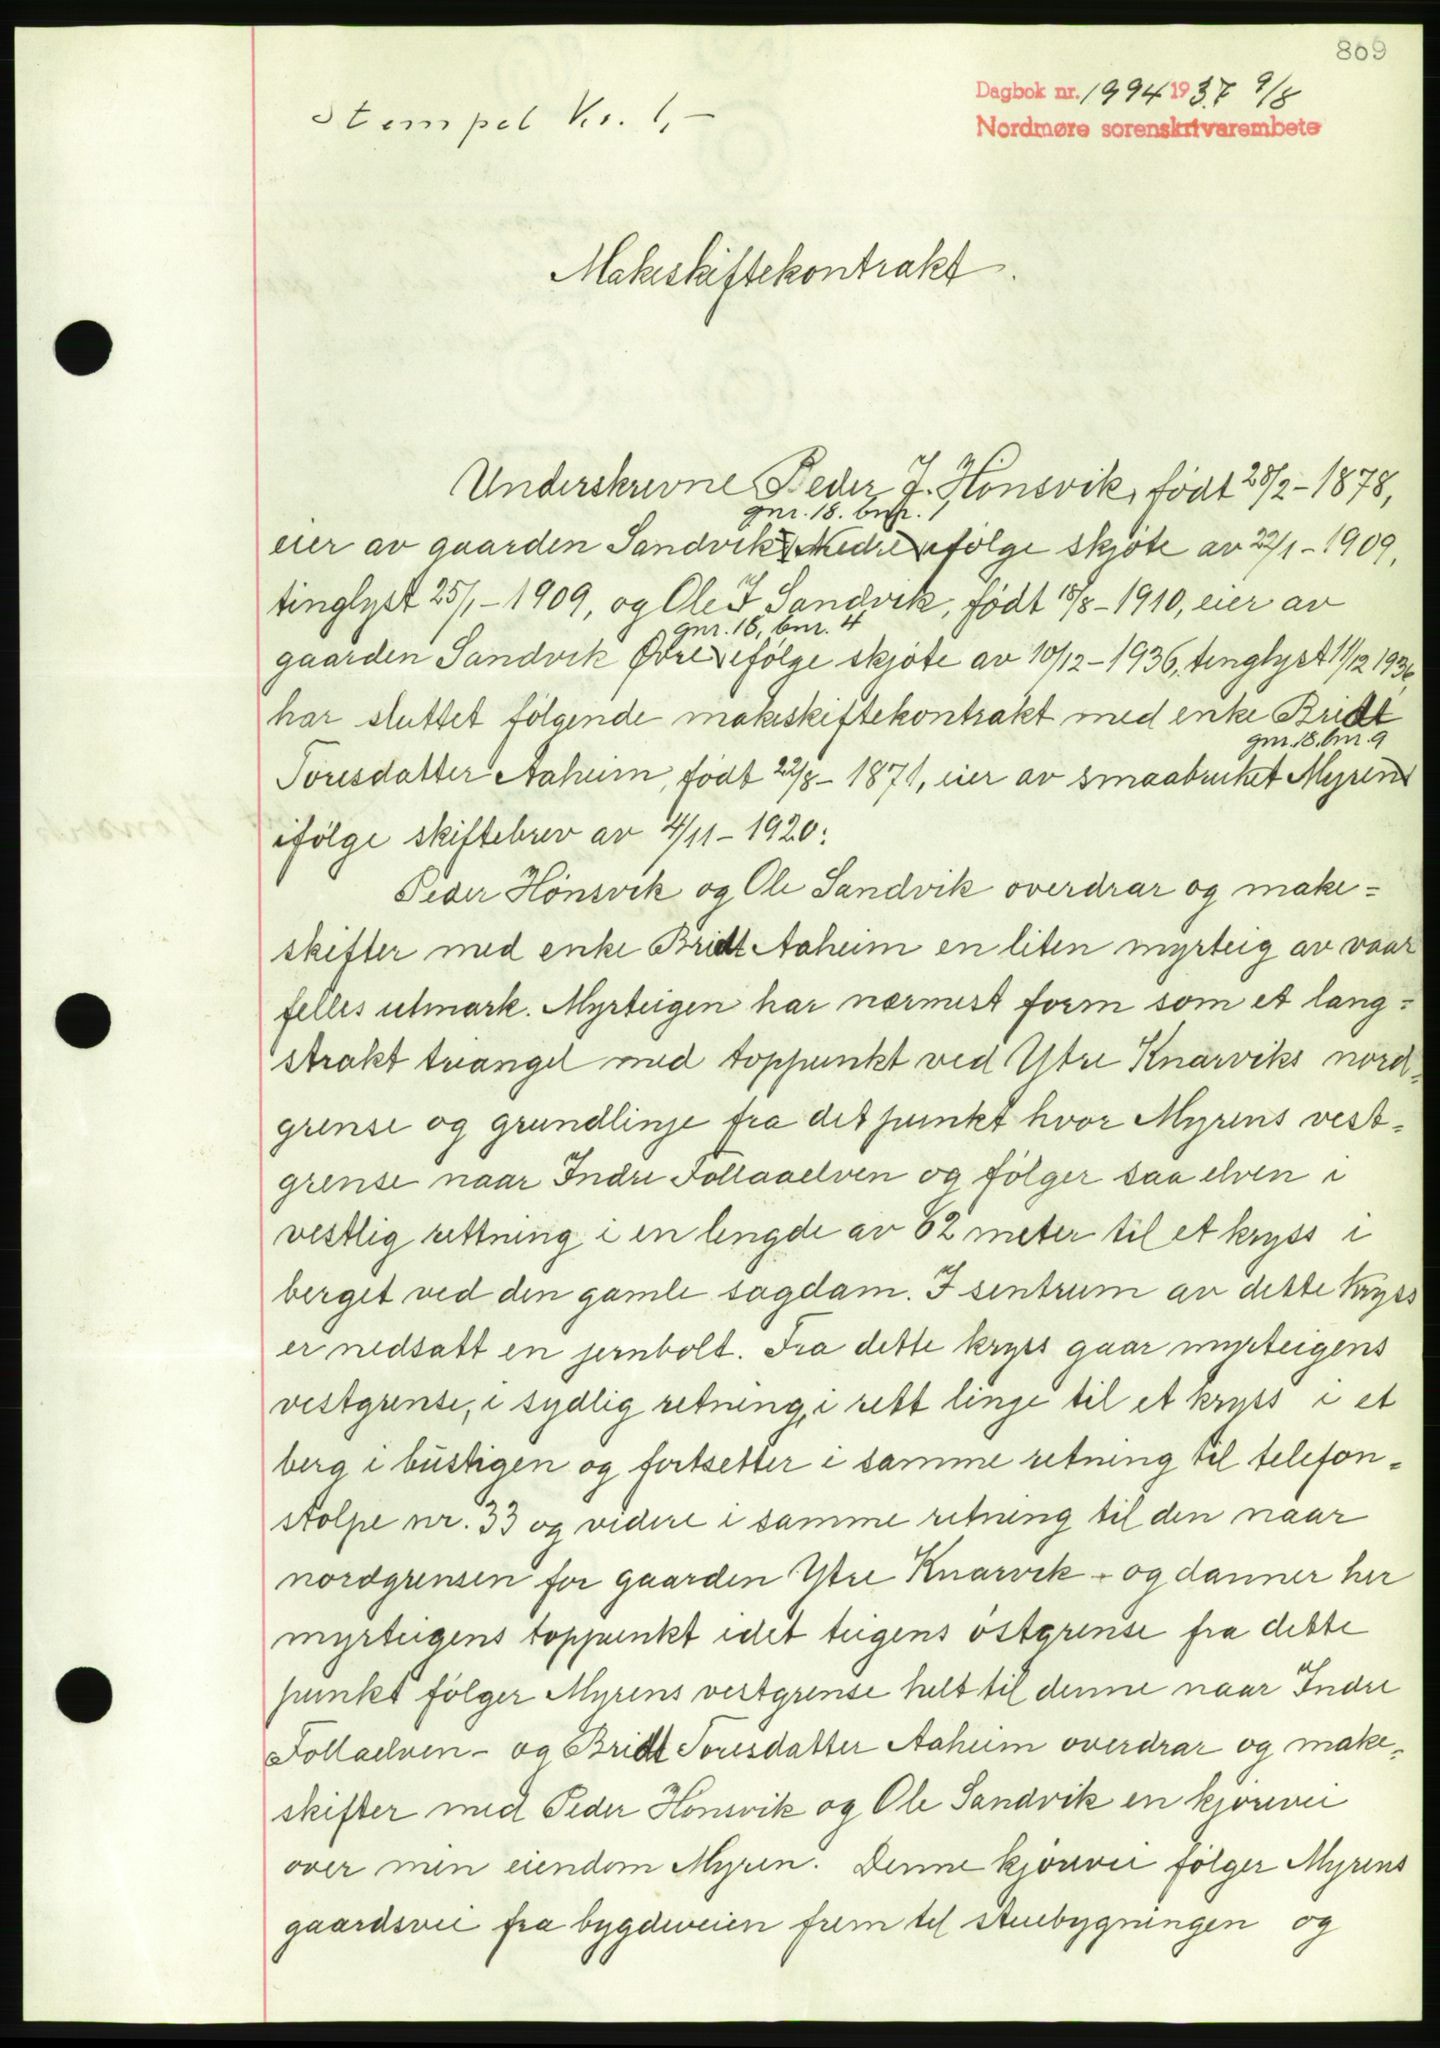 809
Dagbok nr. 1994 1937 9/8
Nordmøre sorenskrivarembete
Stempel Kr. 1,-
Makeskiftekontrakt.
Underskrevne Peder J. Hönsvik, født 28/2-1878,
gnr. 18. bnr. 1
eier av gaarden Sandvik Nedre ifölge skjöte av 22/1-1909,
tinglyst 25/1-1909, og Ole J Sandvik, födt 18/8-1910, eier av
gnr. 18, bnr. 4
gaarden Sandvik Øvre ifölge skjöte av 10/12-1936, tinglyst 11/12 1936,
har sluttet fölgende makeskiftekontrakt med enke Bridt
gnr. 18. bnr. 9
Toresdatter Aaheim, födt 22/8-1871, eier av smaabruket Myren
ifölge skiftebrev av 4/11-1920:
Peder Hönsvik og Ole Sandvik overdrar og make=
skifter med enke Bridt Aaheim en liten myrteig av vaar
felles utmark. Myrteigen har nærmest form som et lang=
strakt triangel med toppunkt ved Ytre Knarviks nord=
grense og grundlinje fra det punkt hvor Myrens vest=
grense naar Indre Follaaelven og fölger saa elven i
vestlig rettning i en lengde av 62 meter til et kryss i
berget ved den gamle sagdam. I sentrum av dette kryss
er nedsatt en jernbolt. Fra dette kryss gaar myrteigens
vestgrense, i sydlig retning, i rett linje til et kryss i et
berg i bustigen og fortsetter i samme retning til telefon=
stolpe nr. 33 og videre i samme retning til den naar
nordgrensen for gaarden Ytre Knarvik - og danner her
myrteigens toppunkt idet teigens östgrense fra dette
punkt fölger Myrens vestgrense helt til denne naar Indre
Follaelven - og Bridt Toresdatter Aaheim overdrar og make=
skifter med Peder Hönsvik og Ole Sandvik en kjörevei
over min eiendom Myren. Denne kjörevei fölger Myrens
gaardsvei fra bygdeveien frem til stuebygningen og